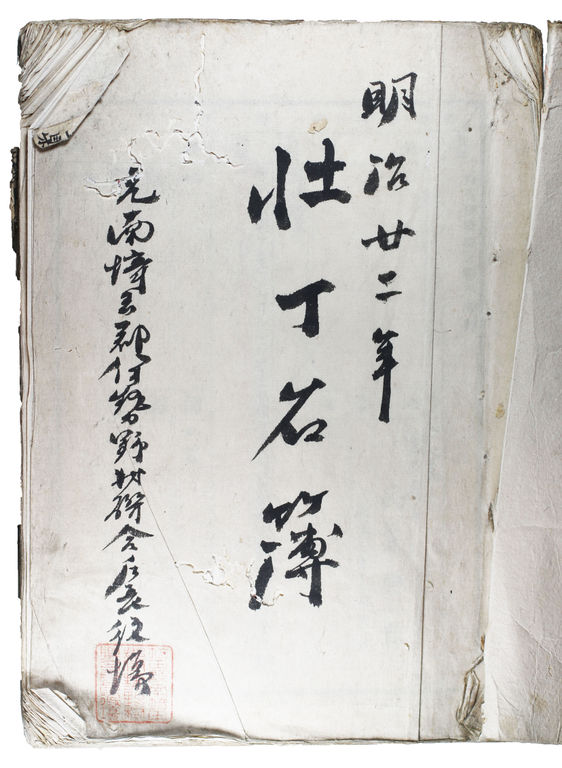 明治廿二年
壮丁名簿
元南埼玉郡野村聯合戸長役場